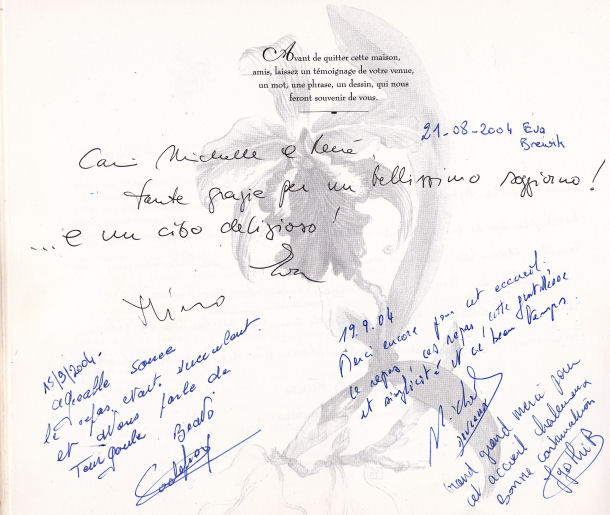 Avant de quitter cette maison,
amis, laissez un témoignage de votre venue,
un mot, une phrase, un dessin, qui nous
feront souvenir de vous.
21-08-2004 Eva
Brewik
Cari Michelle e René,
tante grazie per un bellissimo soggiorno!
...e un cibo delizioso!
Eva
Mino
15/9/2004.
agréable soirée
le repas etait succulent.
et avons parlé de
Bravo
19.9.04
Merci encore pour cet accueil.
ce repas, ces repas, cette gentillesse
et simplicité et ce beau temps.
Michel
Grand grand merci pour
cet accueil chaleureux
bonne continuation